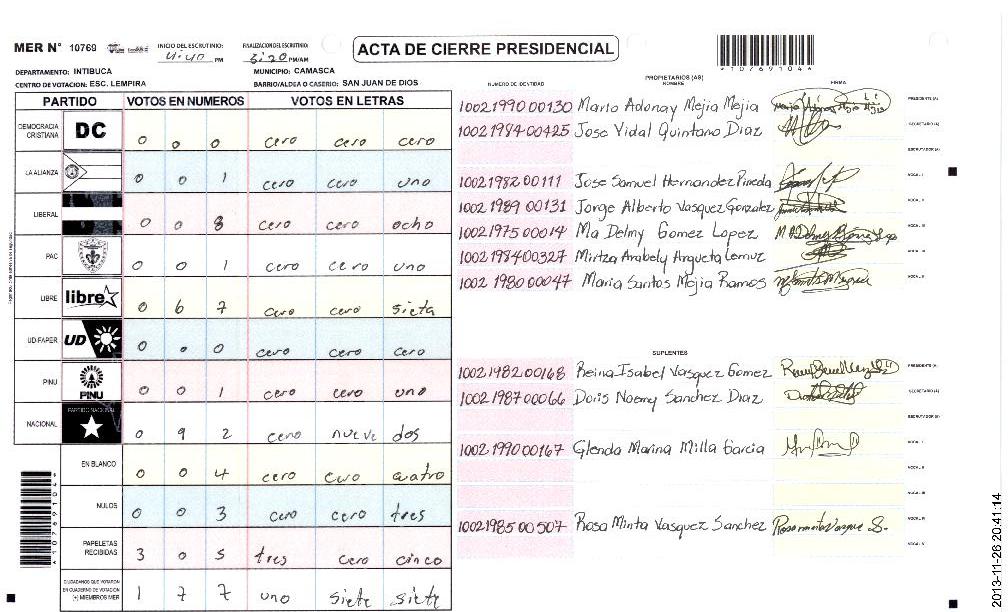 MER N° 10769
INICIO DEL ESCRUTINIO:
4:40 PM
FINALIZACION DEL ESCRUTINIO:
5:20 PM/AM
ACTA DE CIERRE PRESIDENCIAL
*10769104*
DEPARTAMENTO: INTIBUCA
MUNICIPIO: CAMASCA
CENTRO DE VOTACION: ESC. LEMPIRA
BARRIO/ALDEA O CASERIO: SAN JUAN DE DIOS
PARTIDO VOTOS EN NUMEROS VOTOS EN LETRAS
DEMOCRACIA CRISTIANA DC 0 0 0 cero cero cero
LA ALIANZA 0 0 1 cero cero uno
LIBERAL 0 0 8 cero cero ocho
PAC 0 0 1 cero cero uno
LIBRE libre 0 6 7 cero cero sieta
UD-FAPER UD 0 0 0 cero cero cero
PINU PINU 0 0 1 cero cero uno
NACIONAL PARTIDO NACIONAL 0 9 2 cero nueve dos
EN BLANCO 0 0 4 cero cero cuatro
NULOS 0 0 3 cero cero tres
PAPELETAS RECIBIDAS 3 0 5 tres cero cinco
CIUDADANOS QUE VOTARON EN CUADERNO DE VOTACION (+) MIEMBROS MER 1 7 7 uno siete siete
NUMERO DE IDENTIDAD PROPIETARIOS (AS) NOMBRE FIRMA
1002199000130 Mario Adonay Mejia Mejia PRESIDENTE (A)
1002198400425 Jose Vidal Quintano Diaz SECRETARIO (A)
ESCRUTADOR (A)
1002198200111 Jose Samuel Hernandez Pineda VOCAL I
1002198900131 Jorge Alberto Vasquez Gonzalez VOCAL II
1002197500014 Ma Delmy Gomez Lopez VOCAL III
1002198400327 Mirtza Arabely Argueta Lemuz VOCAL IV
1002198000047 Maria Santos Mejia Ramos VOCAL V
SUPLENTES
1002198200168 Reina Isabel Vasquez Gomez PRESIDENTE (A)
1002198700066 Doris Noemy Sanchez Diaz SECRETARIO (A)
ESCRUTADOR (A)
1002199000167 Glenda Marina Milla Garcia VOCAL I
VOCAL II
VOCAL III
1002198500507 Rosa Minta Vasquez Sanchez VOCAL IV
VOCAL V
*10769104*
2013-11-26 20:41:14